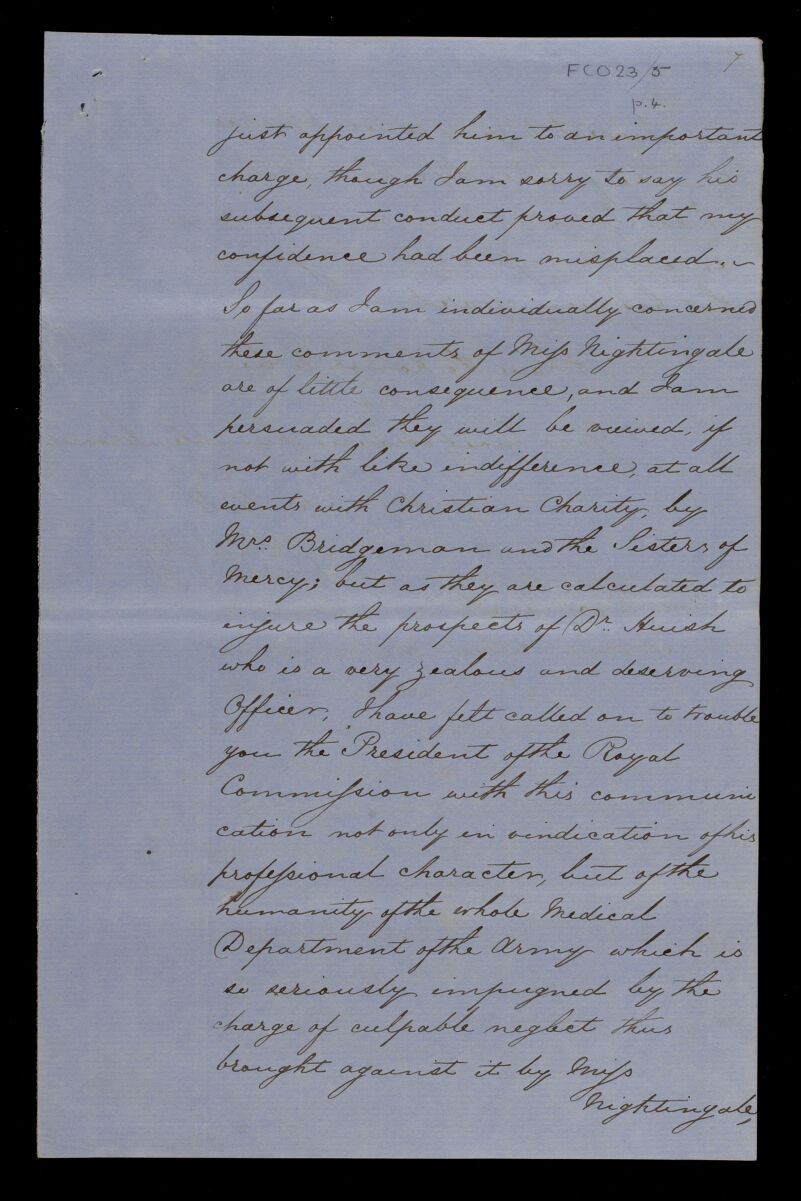 7
FCO23/5
p.4.
just appointed him to an important
charge, though I am sorry to say his
subsequent conduct proved that my
confidence had been misplaced. ~
So far as I am individually concerned
these comments of Miss Nightingale
are of little consequence, and I am
persuaded they will be veiwed, if
not with like indifference, at all
events with Christian Charity, by
Mrs. Bridgeman and the Sisters of
Mercy; but as they are calculated to
injure the prospects of Dr. Huish
who is a very zealous and deserving
Officer, I have felt called on to trouble
you the President of the Royal
Commission with this communi
cation not only in vindication of his
professional character, but of the
humanity of the whole Medical
Department of the Army which is
so seriously impugned by the
charge of culpable neglect thus
brought against it by Miss
Nightingale,